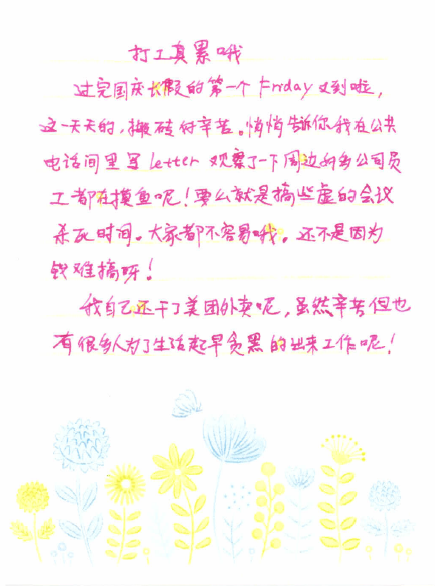 打工真累哦
过完国庆长假的第一个Friday又到啦,
这一天天的,搬砖好辛苦。悄悄告诉你我在公共
电话间里写letter 观察了一下周边好多公司员
工都在摸鱼呢!要么就是搞些虚的会议
杀死时间。大家都不容易哦。还不是因为
钱难搞呀!
我自己还干了美团外卖呢,虽然辛苦但也
有很多人为了生活起早贪黑的出来工作呢!